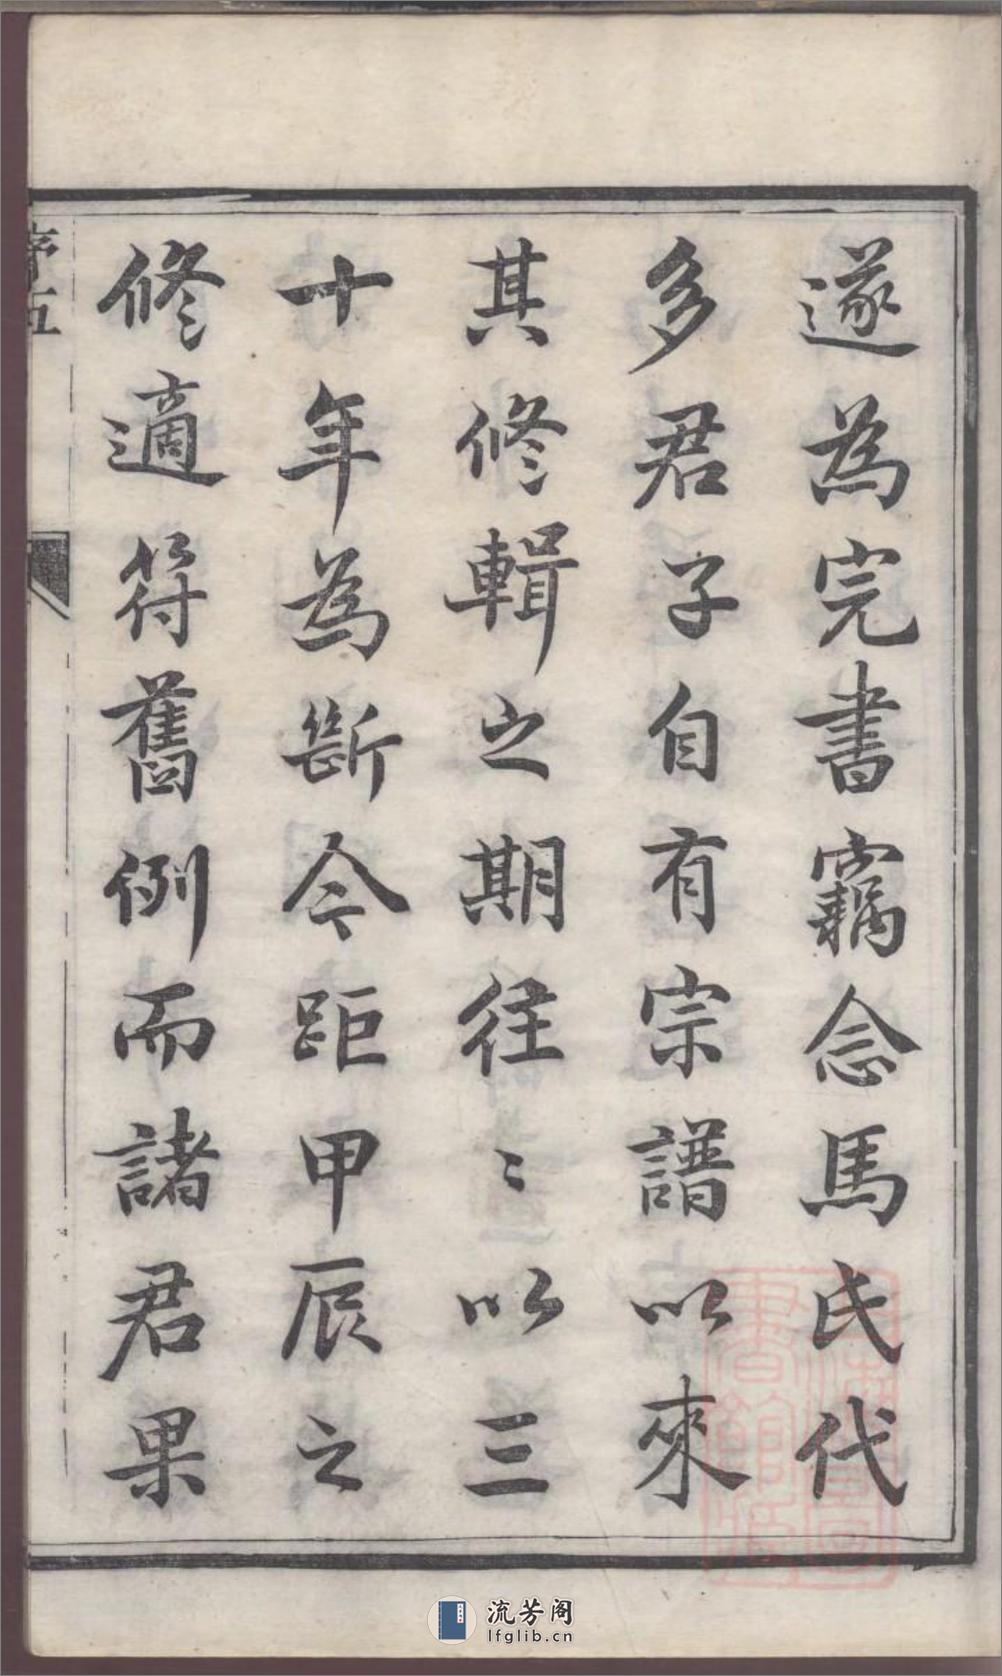 遂為完書竊念馬氏代
多君子自有宗譜以來
其修輯之期往〻以三
十年為斷今距甲辰之
修適符舊例而諸君果
序五
流芳阁
lfglib.cn